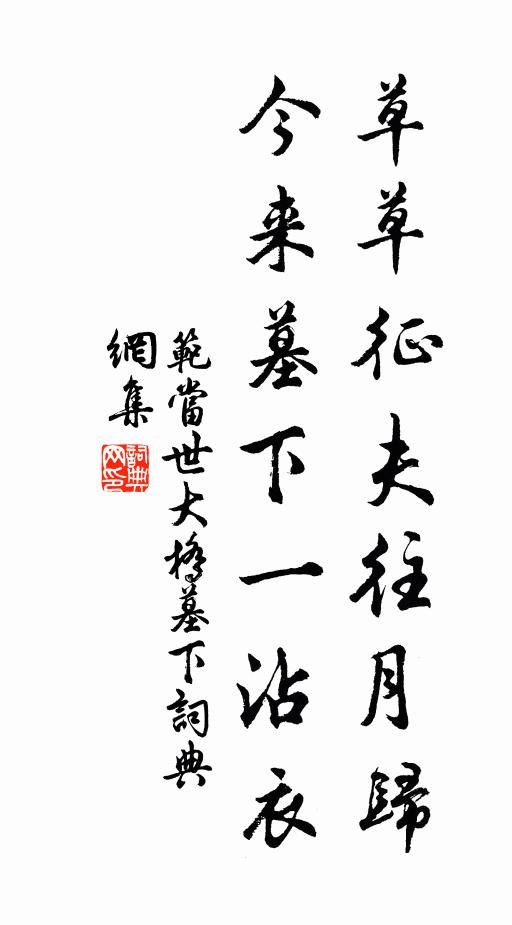 草草征夫往月歸
今来墓下一沾衣
範當世大橋墓下詞典
網集
詞典
网印